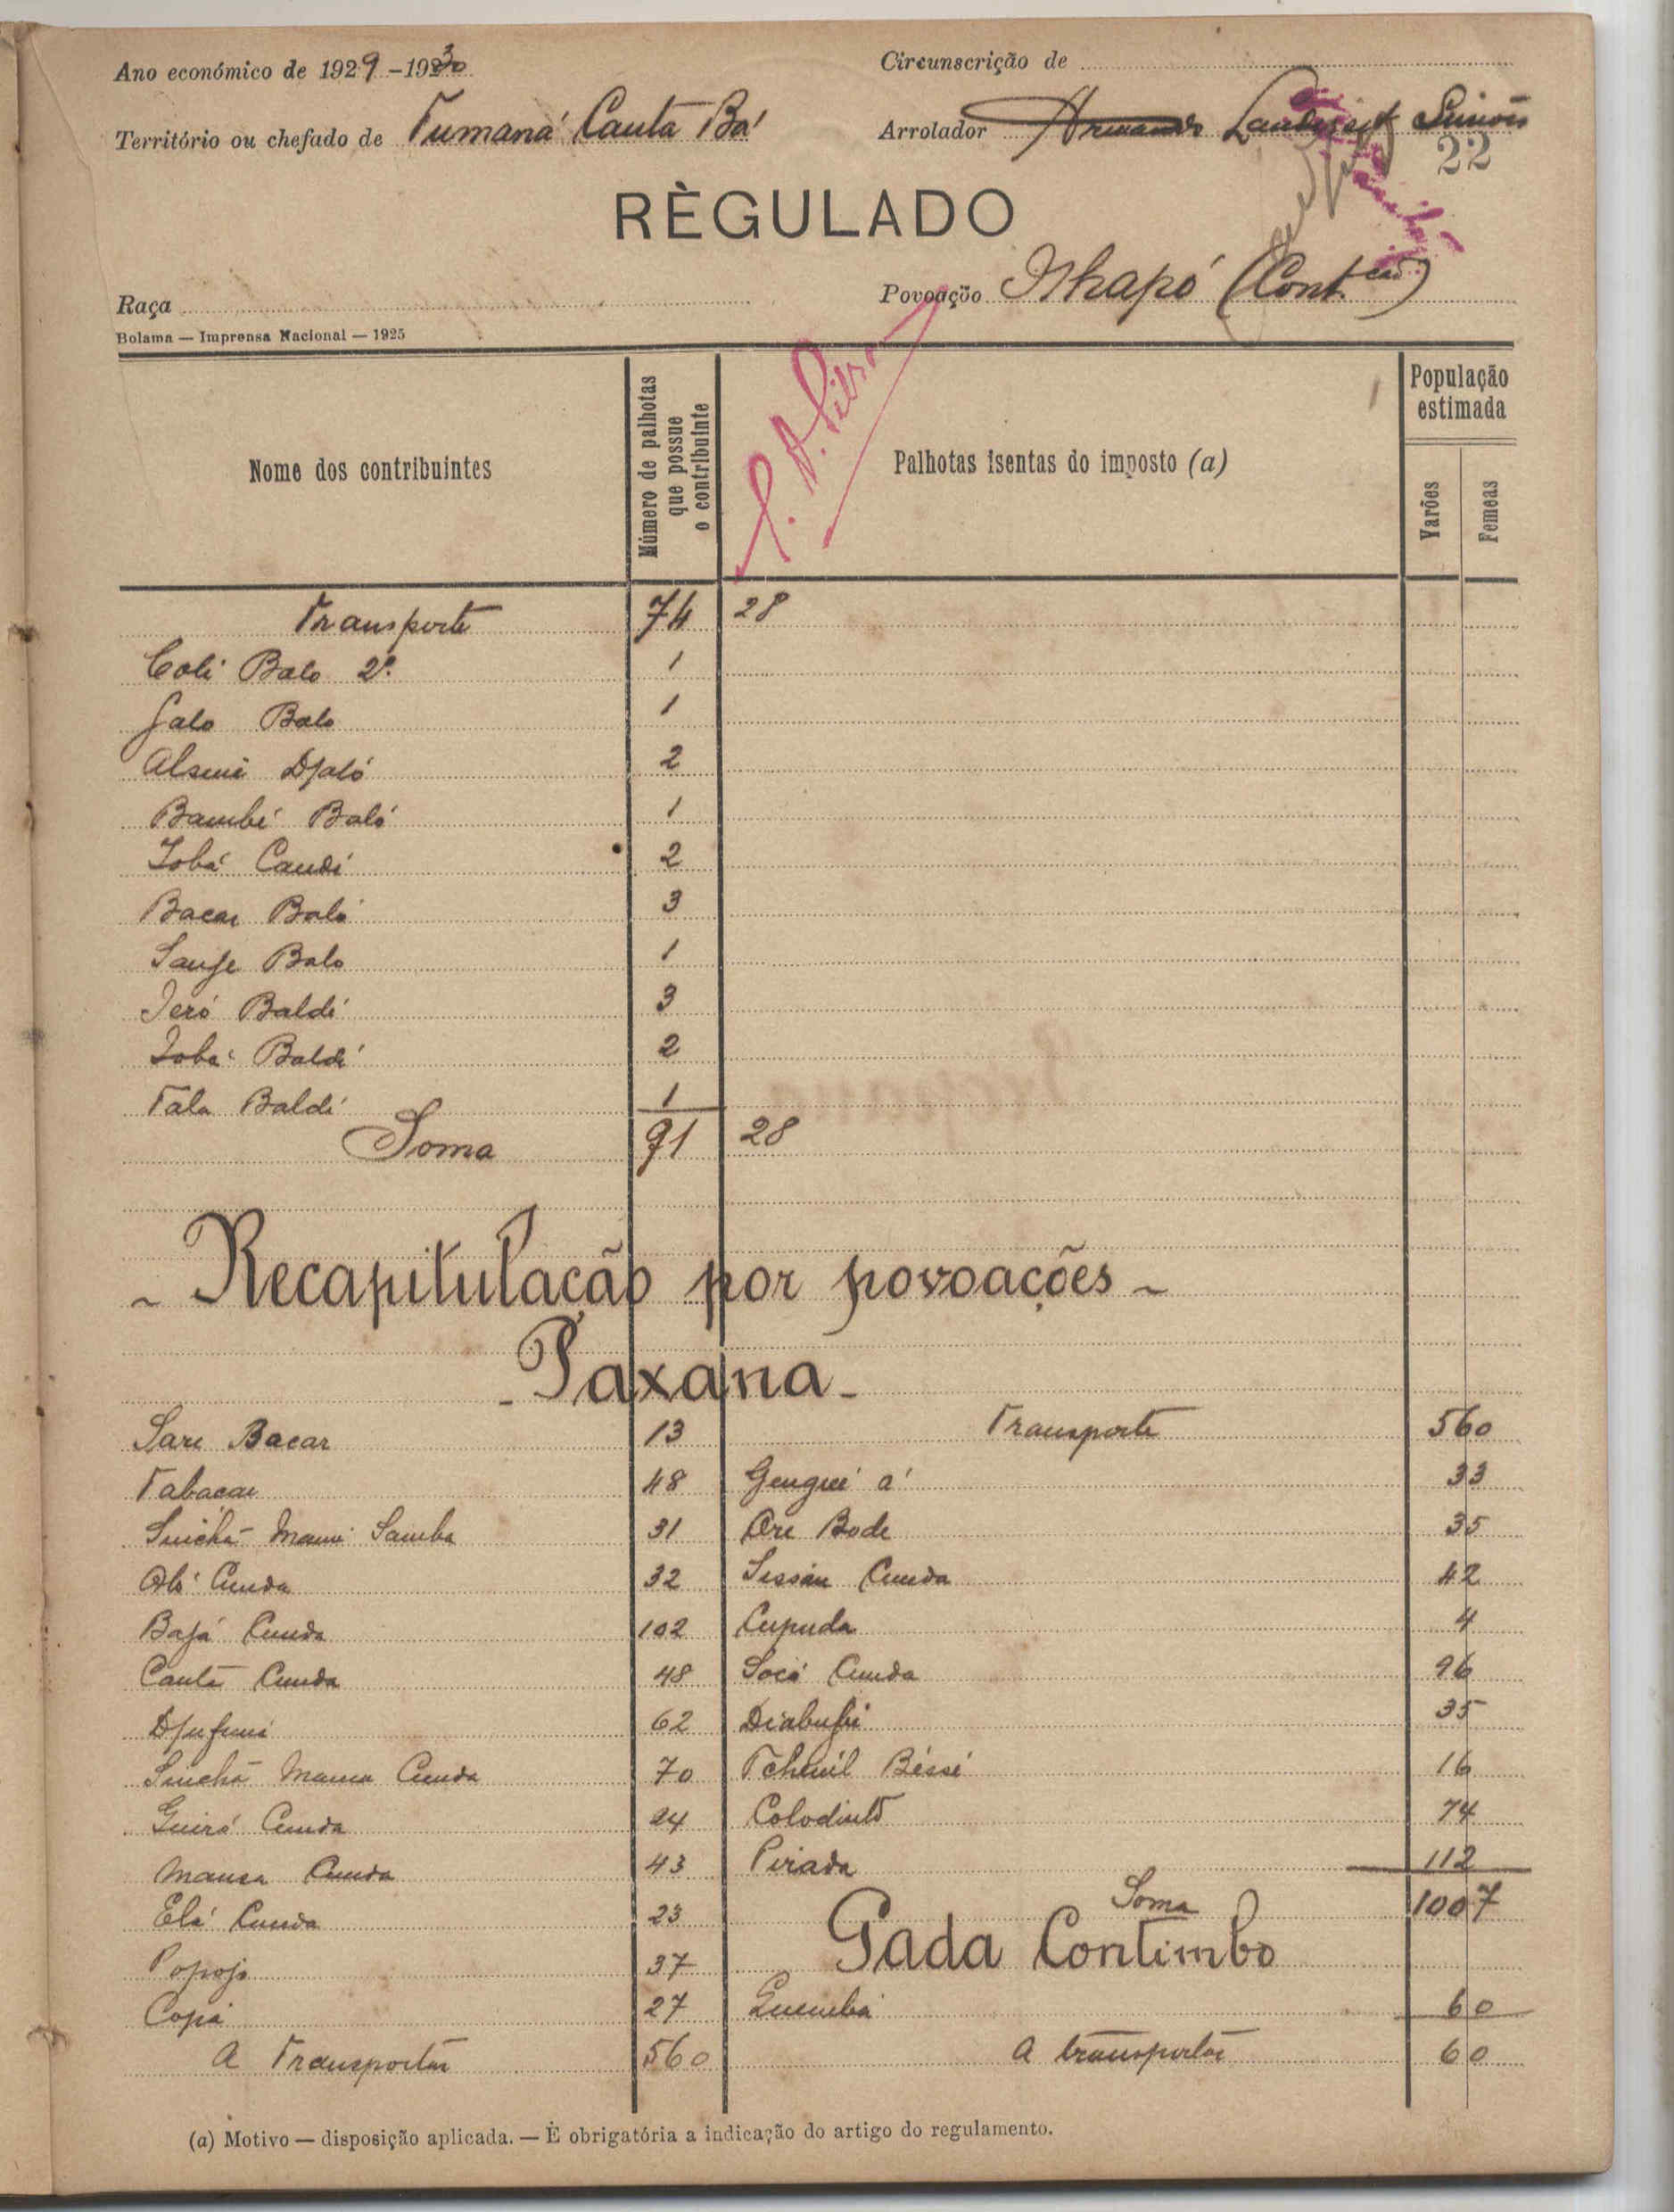 Ano económico de 1929-1930
Circunscrição de
Território ou chefado de Tumaná Canta Bá
Arrolador Armando Simões
22
RÈGULADO
Raça
Povoação Nhapó (Cont.ção)
Bolama — Imprensa Nacional — 1925
Nome dos contribuintes
Número de palhotas que possue o contribuinte
Palhotas isentas do imposto (a)
População estimada
Varões
Femeas
Transporte 74 28
Coli Balo 2º 1
Galo Balo 1
Alseni Djaló 2
Bambé Baló 1
Iobá Candé 2
Bacar Baló 3
Sanje Balo 1
Ieró Baldé 3
Iobá Baldé 2
Tala Baldé 1
Soma 91 28
- Recapitulação por povoações -
- Paxana -
Sare Bacar 13 Transporte 560
Tabacau 48 Gengué á 33
Sinchã Mami Samba 31 Ore Bode 35
Aló Cunda 32 Sissáu Cunda 42
Bajá Cunda 102 Cupuda 4
Cantá Cunda 48 Socó Cunda 96
Djufuná 62 35
Sinchã Mama Cunda 70 Béssé 16
Guiró Cunda 24 Colodinto 74
Mansa Cunda 43 Pirada 112
Elá Cunda 23 Soma 1007
Popojo 37 Gada Contimbo
Copá 27 60
A Transportar 560 A transportar 60
(a) Motivo — disposição aplicada. — É obrigatória a indicação do artigo do regulamento.